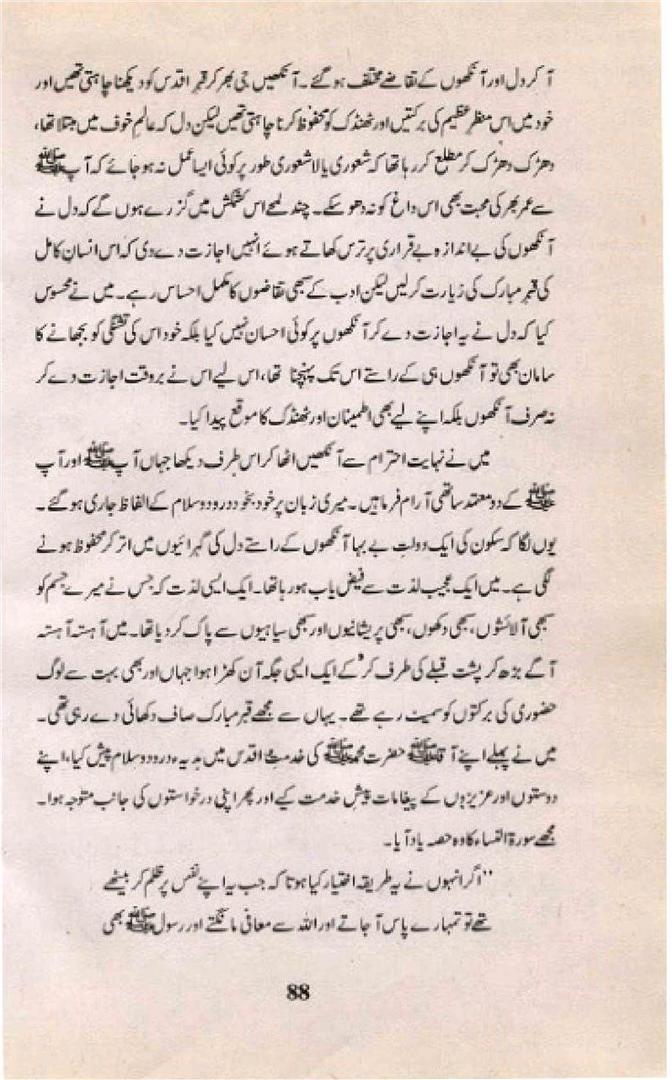 آ کر دل اور آنکھوں کے تقاضے مختلف ہو گئے۔ آنکھیں جی بھر کر قبرِ اقدس کو دیکھنا چاہتی تھیں اور
خود میں اس منظرِ عظیم کی برکتیں اور ٹھنڈک کو محفوظ کرنا چاہتی تھیں لیکن دل کہ عالمِ خوف میں مبتلا تھا،
دھڑک دھڑک کر مطلع کر رہا تھا کہ شعوری یا لاشعوری طور پر کوئی ایسا عمل نہ ہو جائے کہ آپ ﷺ
سے عمر بھر کی محبت بھی اس داغ کو نہ دھو سکے۔ چند لمحے اس کشمکش میں گزرے ہوں گے کہ دل نے
آنکھوں کی بے اندازہ بے قراری پر ترس کھاتے ہوئے انہیں اجازت دے دی کہ اس انسان کامل
کی قبرِ مبارک کی زیارت کر لیں لیکن ادب کے سبھی تقاضوں کا مکمل احساس رہے۔ میں نے محسوس
کیا کہ دل نے یہ اجازت دے کر آنکھوں پر کوئی احسان نہیں کیا بلکہ خود اس کی تشنگی کو بجھانے کا
سامان بھی تو آنکھوں ہی کے راستے اس تک پہنچنا تھا، اس لیے اس نے بروقت اجازت دے کر
نہ صرف آنکھوں بلکہ اپنے لیے بھی اطمینان اور ٹھنڈک کا موقع پیدا کیا۔
میں نے نہایت احترام سے آنکھیں اٹھا کر اس طرف دیکھا جہاں آپ ﷺ اور آپ
ﷺ کے دو معتمد ساتھی آرام فرما ہیں۔ میری زبان پر خود بخود درود و سلام کے الفاظ جاری ہو گئے۔
یوں لگا کہ سکون کی ایک دولتِ بے بہا آنکھوں کے راستے دل کی گہرائیوں میں اتر کر محفوظ ہونے
لگی ہے۔ میں ایک عجیب لذت سے فیض یاب ہو رہا تھا۔ ایک ایسی لذت کہ جس نے میرے جسم کو
سبھی آلائشوں، سبھی دکھوں، سبھی پریشانیوں اور سبھی سیاہیوں سے پاک کر دیا تھا۔ میں آہستہ آہستہ
آگے بڑھ کر پشت قبلے کی طرف کر کے ایک ایسی جگہ آن کھڑا ہوا جہاں اور بھی بہت سے لوگ
حضوری کی برکتوں کو سمیٹ رہے تھے۔ یہاں سے مجھے قبر مبارک صاف دکھائی دے رہی تھی۔
میں نے پہلے اپنے آقا ﷺ حضرت محمد ﷺ کی خدمتِ اقدس میں ہدیہء درود و سلام پیش کیا، اپنے
دوستوں اور عزیزوں کے پیغامات پیشِ خدمت کیے اور پھر اپنی درخواستوں کی جانب متوجہ ہوا۔
مجھے سورۃ النساء کا وہ حصہ یاد آیا۔
"اگر انہوں نے یہ طریقہ اختیار کیا ہوتا کہ جب یہ اپنے نفس پر ظلم کر بیٹھے
تھے تو تمہارے پاس آ جاتے اور اللہ سے معافی مانگتے اور رسول ﷺ بھی
88